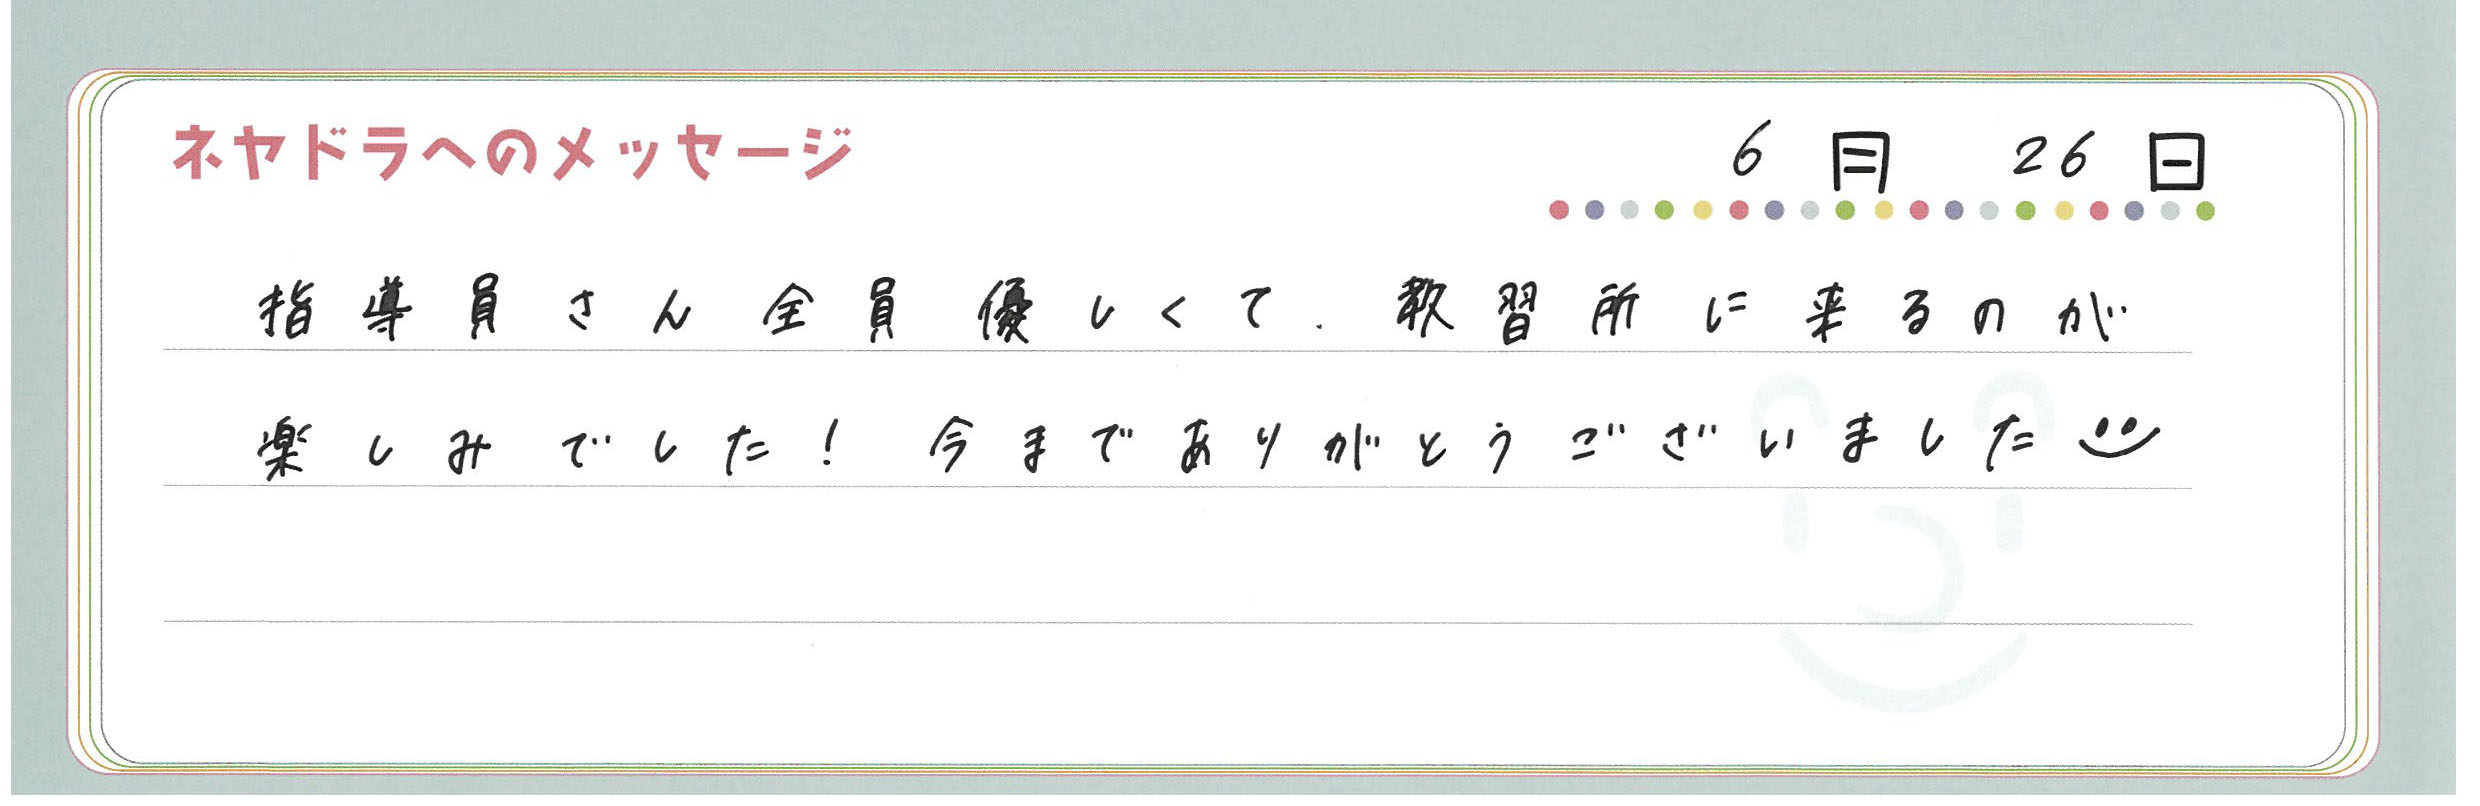 ネヤドラへのメッセージ
6月 26日
指導員さん全員優しくて、教習所に来るのが
楽しみでした！今までありがとうございました